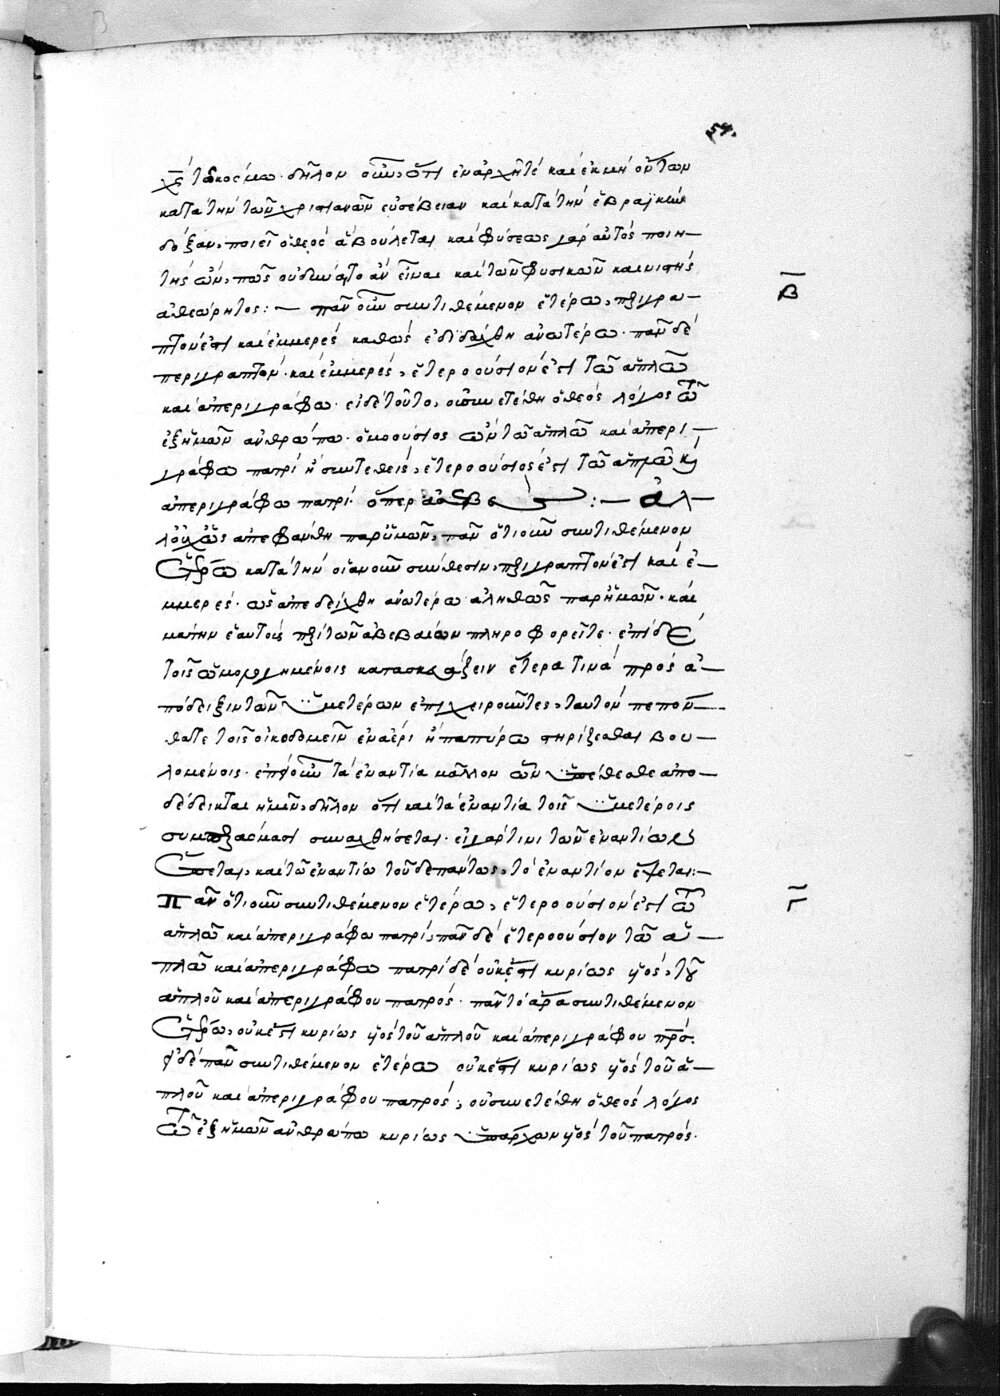 54.
χε τῶ κόσμω· δῆλον οὖν, ὅτι ἐν ἀρχῆ τὲ καὶ ἐκ μὴ ὄντων
κατὰ τὴν τῶν χριστιανῶν εὐσέβειαν καὶ κατὰ τὴν ἑβραϊκὴν
δόξαν, ποιεῖ ὁ θεὸς ἃ βούλεται καὶ φύσεως γὰρ αὐτὸς ποιη–
τὴς ὢν, πῶς οὐ δύναιτο ἂν εἶναι καὶ τῶν φυσικῶν καινιστὴς
ἀθεώρητος: – πᾶν οὖν συντιθέμενον ἑτέρω, περιγρα–
Β
πτὸν ἐστὶ καὶ ἐμμερὲς καθὼς ἐδιδάχθη ἀνωτέρω· πᾶν δὲ
περιγραπτὸν· καὶ ἐμμερὲς, ἑτεροούσιον ἐστὶ τῶ ἁπλῶ
καὶ ἀπεριγράφω· εἰ δὲ τοῦτο, οὐ συνετέθη ὁ θεὸς λόγος τῶ
ἐξ ἡμῶν ἀνθρώπω· ὁμοούσιος ὢν τῶ ἁπλῶ καὶ ἀπερι–
γράφω πατρὶ ἢ συντεθεὶς, ἑτεροούσιος ἐστὶ τῶ ἁπλῶ κὶ
ἀπεριγράφω πατρί· ὅπερ ἀσεβές :– ἀλ–
λ' οὐχ ὡς ἀπεφάνθη παρ' ὑμῶν, πᾶν ὁτιοῦν συντιθέμενον
ἑτέρω κατὰ τὴν οἱανοῦν σύνθεσιν, περιγραπτόν ἐστὶ καὶ ἐ–
μμερές· ὡς ἀπεδείχθη ἀνωτέρω ἀληθῶς παρ' ἡμῶν· καὶ
μάτην ἑαυτοὺς περὶ τῶν ἀβεβαίων πληροφορεῖτε· ἐπὶ δὲ
τοῖς ὡμολογημένοις κατασκευάζειν ἕτερα τινὰ πρὸς ἀ–
πόδειξιν τῶν ὑμετέρων ἐπιχειροῦντες, ταυτὸν πεπόν–
θατε τοῖς οἰκοδομεῖν ἐν ἀέρι ἢ παπύρω στηρίζεσθαι βου–
λομένοις· ἐπεὶ οὖν τὰ ἐναντία μᾶλλον ὧν ὑπέθεσθε ἀπο–
δέδεικται ἡμῖν, δῆλον ὅτι καὶ τὰ ἐναντία τοῖς ὑμετέροις
συμπεράσμασι συναχθήσεται· εἰ γάρ τινι τῶν ἐναντίων
ἕπεται, καὶ τῶ ἐναντίω τοῦδε πάντως, τὸ ἐναντίον ἕψεται:–
Γ
Πᾶν ὁτιοῦν συντιθέμενον ἑτέρω, ἑτεροούσιον ἐστὶ τῶ
ἁπλῶ καὶ ἀπεριγράφω πατρί, πᾶν δὲ ἑτεροούσιον τῶ ἁ–
πλῶ καὶ ἀπεριγράφω πατρὶ δὲ οὐκ ἔστι κυρίως υἱὸς, τοῦ
ἁπλοῦ καὶ ἀπεριγράφου πατρός· πᾶν τὸ ἄρα συντιθέμενον
ἑτέρω, οὐκ ἔστι κυρίως υἱὸς τοῦ ἁπλοῦ καὶ ἀπεριγράφου πρσ.
εἰ δὲ πᾶν συντιθέμενον ἑτέρω οὐκ ἔστι κυρίως υἱὸς τοῦ ἁ–
πλοῦ καὶ ἀπεριγράφου πατρὸς, οὐ συνετέθη ὁ θεὸς λόγος
τῶ ἐξ ἡμῶν ἀνθρώπω κυρίως ὑπάρχων υἱὸς τοῦ πατρός.